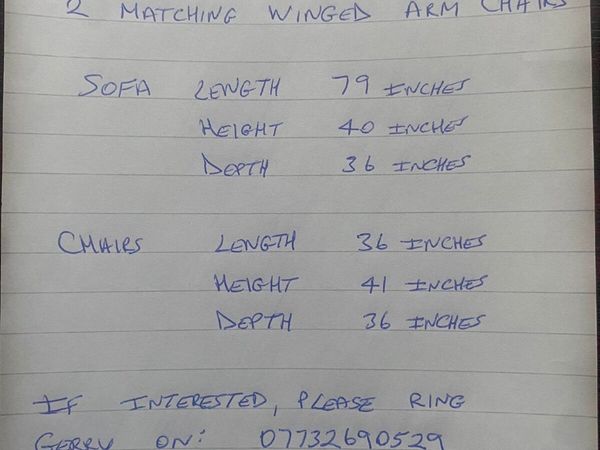 2 MATCHING WINGED ARM CHAIRS
SOFA LENGTH 79 INCHES
HEIGHT 40 INCHES
DEPTH 36 INCHES
CHAIRS LENGTH 36 INCHES
HEIGHT 41 INCHES
DEPTH 36 INCHES
IF INTERESTED, PLEASE RING
GERRY ON: 07732690529